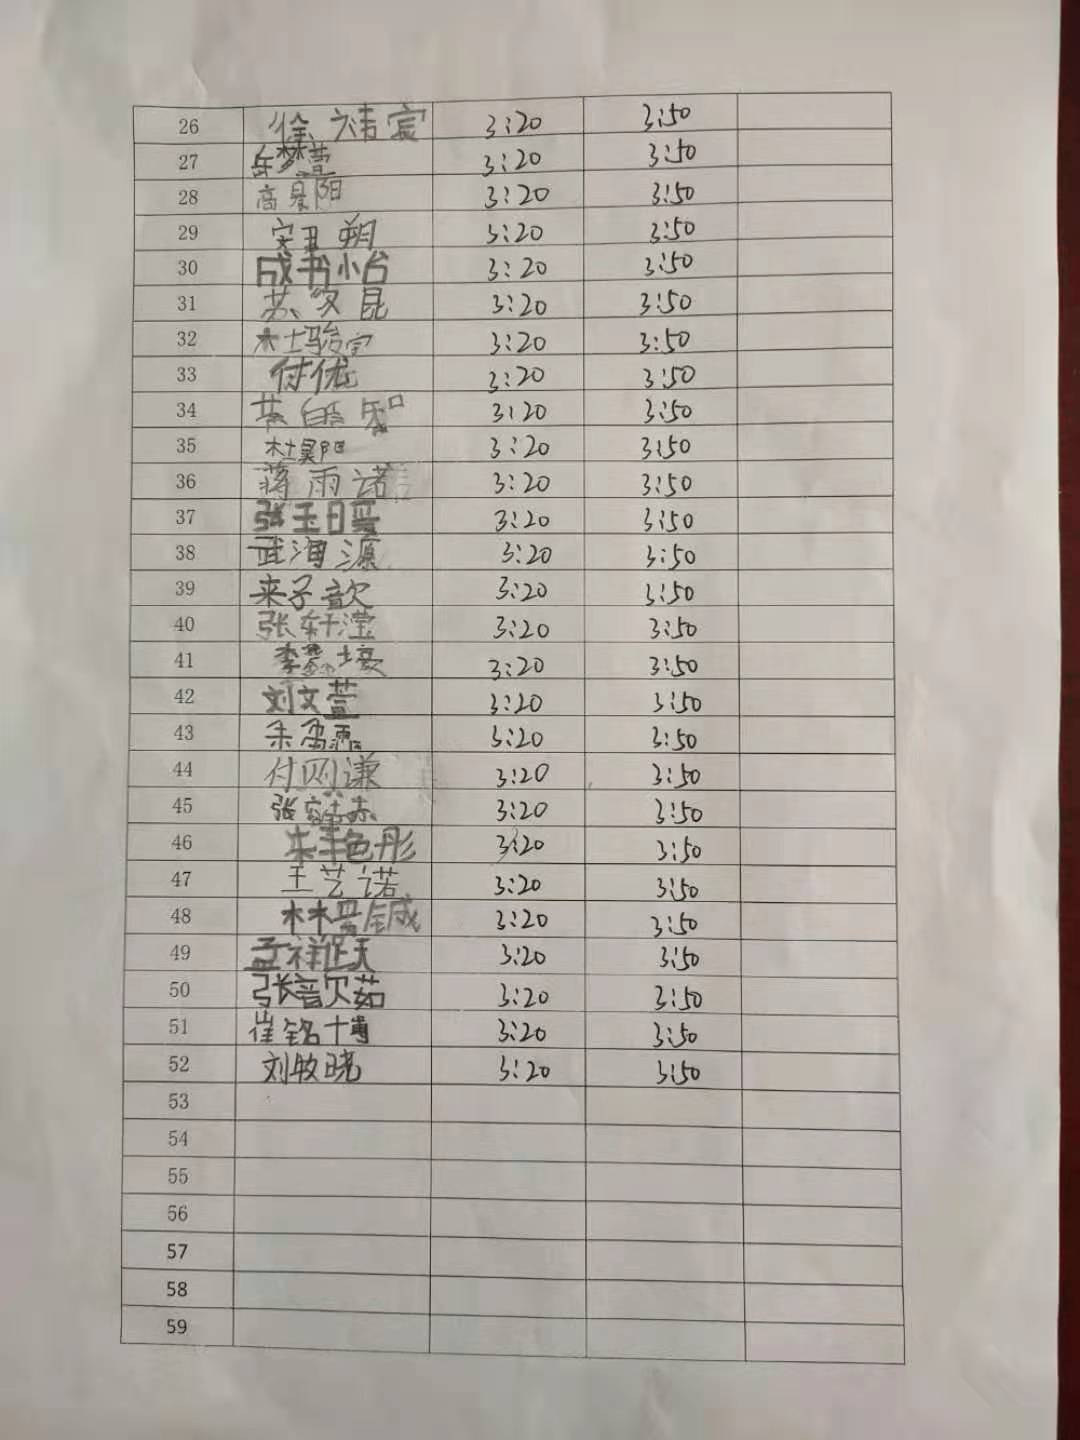 26 徐祎宸 3:20 3:50
27 岳梦莹 3:20 3:50
28 高景阳 3:20 3:50
29 朔 3:20 3:50
30 成书怡 3:20 3:50
31 苏文昆 3:20 3:50
32 杜骏宇 3:20 3:50
33 付优 3:20 3:50
34 智 3:20 3:50
35 杜昊阳 3:20 3:50
36 蒋雨诺 3:20 3:50
37 张玉 3:20 3:50
38 武海源 3:20 3:50
39 来子歆 3:20 3:50
40 张轩滢 3:20 3:50
41 李 壕 3:20 3:50
42 刘文萱 3:20 3:50
43 3:20 3:50
44 付则谦 3:20 3:50
45 张 3:20 3:50
46 艳彤 3:20 3:50
47 王艺诺 3:20 3:50
48 林晏铖 3:20 3:50
49 孟祥 3:20 3:50
50 张歆茹 3:20 3:50
51 崔铭博 3:20 3:50
52 刘牧晓 3:20 3:50
53
54
55
56
57
58
59